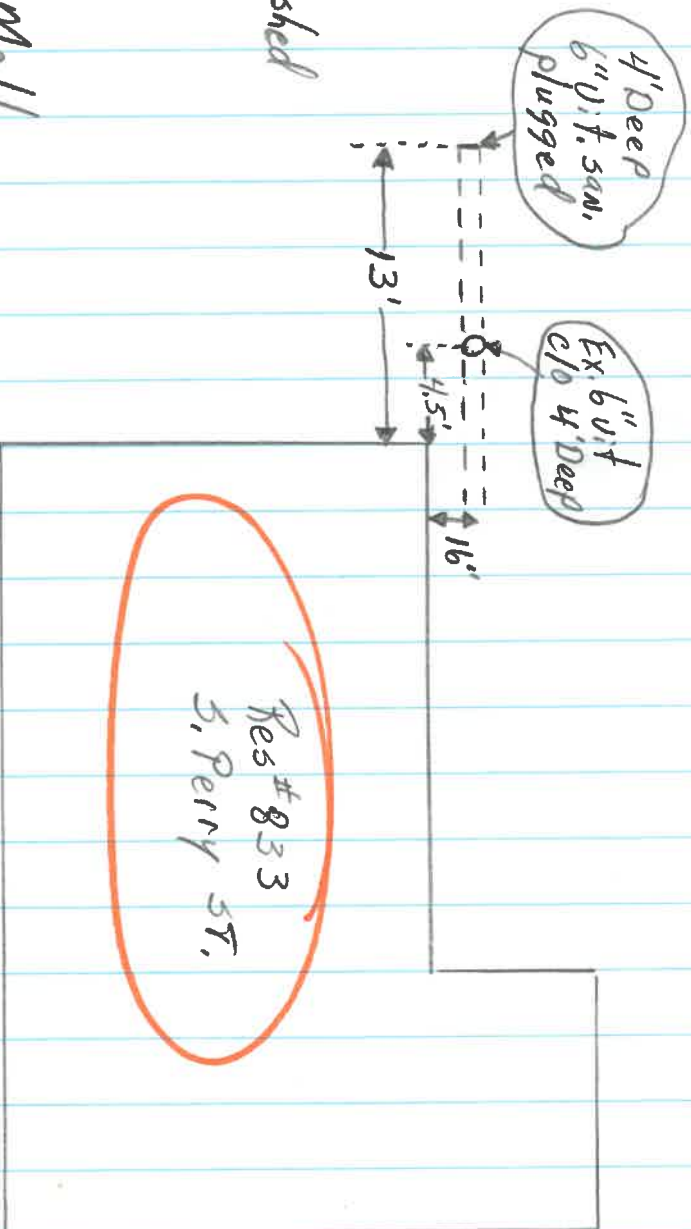 4' Deep
6" Vit. san.
plugged
Ex. 6" Vit
c/o 4' Deep
13'
4.5'
16"
Res # 833
S. Perry ST.
shed